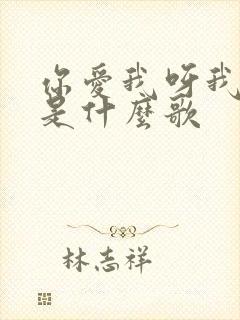 你爱我呀我
是什麼歌
林志祥